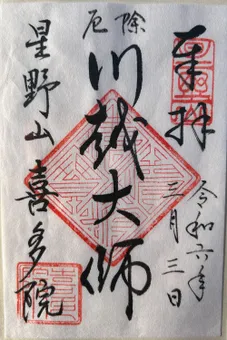 奉拝
令和六年
三月三日
厄除
川越大師
星野山喜多院